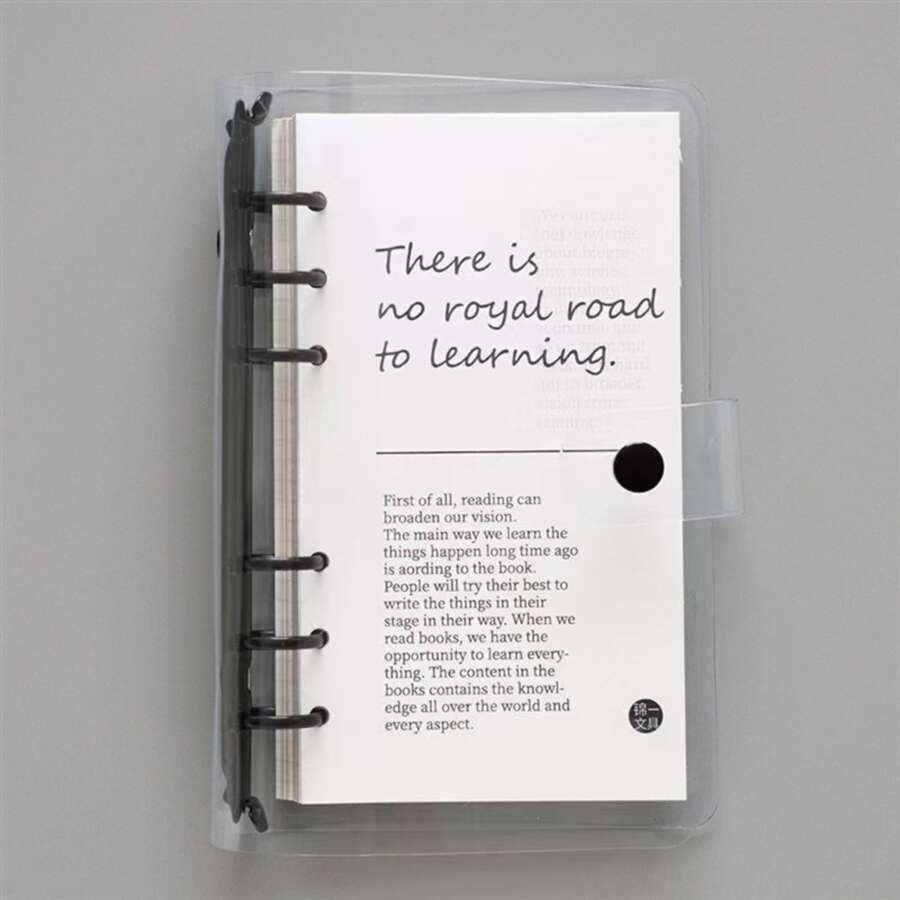 There is
no royal road
to learning.
First of all, reading can
broaden our vision.
The main way we learn the
things happen long time ago
is aording to the book.
People will try their best to
write the things in their
stage in their way. When we
read books, we have the
opportunity to learn every-
thing. The content in the
books contains the knowl-
edge all over the world and
every aspect.
锦一
文具